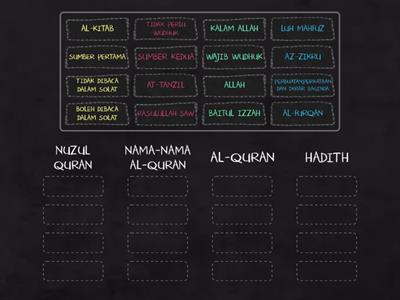 AL-KITAB
TIDAK PERLU
WUDHUK
KALAM ALLAH
LUH MAHFUZ
SUMBER PERTAMA
SUMBER KEDUA
WAJIB WUDHUK
AZ-ZIKRU
TIDAK DIBACA
DALAM SOLAT
AT-TANZIL
ALLAH
PERBUATAN,PERKATAAN
DAN IKRAR BAGINDA
BOLEH DIBACA
DALAM SOLAT
RASULULLAH SAW
BAITUL IZZAH
AL-FURQAN
NUZUL
QURAN
NAMA-NAMA
AL-QURAN
AL-QURAN
HADITH